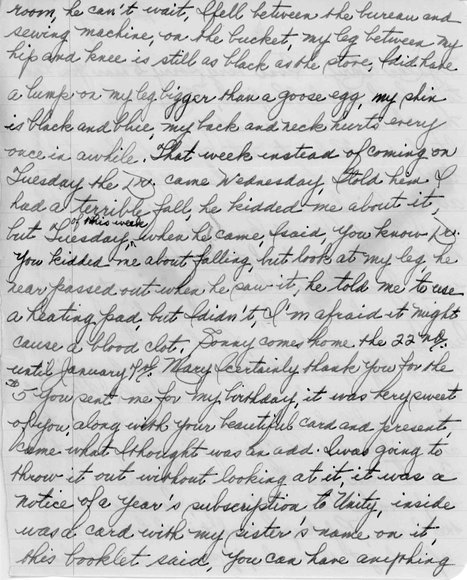 room, he can't wait, I fell between the bureau and
sewing machine, on the bucket, my leg between my
hip and knee is still as black as the stove, I did have
a lump on my leg bigger than a goose egg, my shin
is black and blue, my back and neck hurts every
once in awhile. That week instead of coming on
Tuesday the Dr. came Wednesday, I told him I
had a terrible fall, he kidded me about it,
of this week
but Tuesday, when he came, I said you know Dr.
you kidded me about falling, but look at my leg he
near passed out when he saw it, he told me to use
a heating pad, but I didn't, I'm afraid it might
cause a blood clot, Sonny comes home the 22nd.
until January Mary I certainly thank you for the
$5 you sent me for my birthday, it was very sweet
of you, along with your beautiful card and present,
came what I thought was an add. I was going to
throw it out without looking at it, it was a
notice of a year's subscription to Unity, inside
was a card with my sister's name on it,
this booklet said, you can have anything